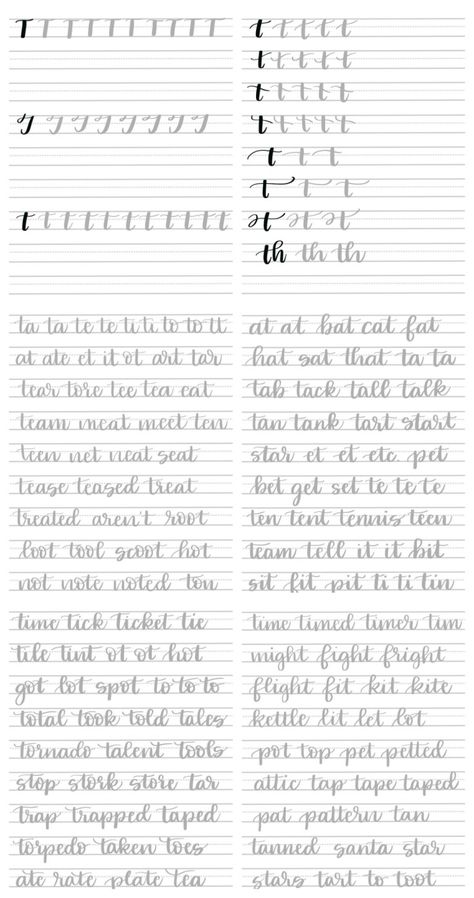 T T T T T T T T T T
T T T T T T T T
t t t t t t t t t t
t t t t t
t t t t t
t t t t t
t t t t t
t t t
t t t
t t t
th th th
ta ta te te ti ti to to tt
at ate et it ot art tar
tear tore tee tea eat
team meat meet ten
teen net neat seat
tease teased treat
treated aren't root
loot tool scoot hot
not note noted ton
at at bat cat fat
hat sat that ta ta
tab tack tall talk
tan tank tart start
star et et etc pet
bet get set te te te
ten tent tennis teen
team tell it it bit
sit fit pit ti ti tin
time tick ticket tie
tile tint ot ot hot
got lot spot to to to
total took told tales
tornado talent tools
stop stork store tar
trap trapped taped
torpedo taken toes
ate rate plate tea
time timed timer tim
might fight fright
flight fit kit kite
kettle lit let lot
pot top pet petted
attic tap tape taped
pat pattern tan
tanned santa star
stars tart to toot